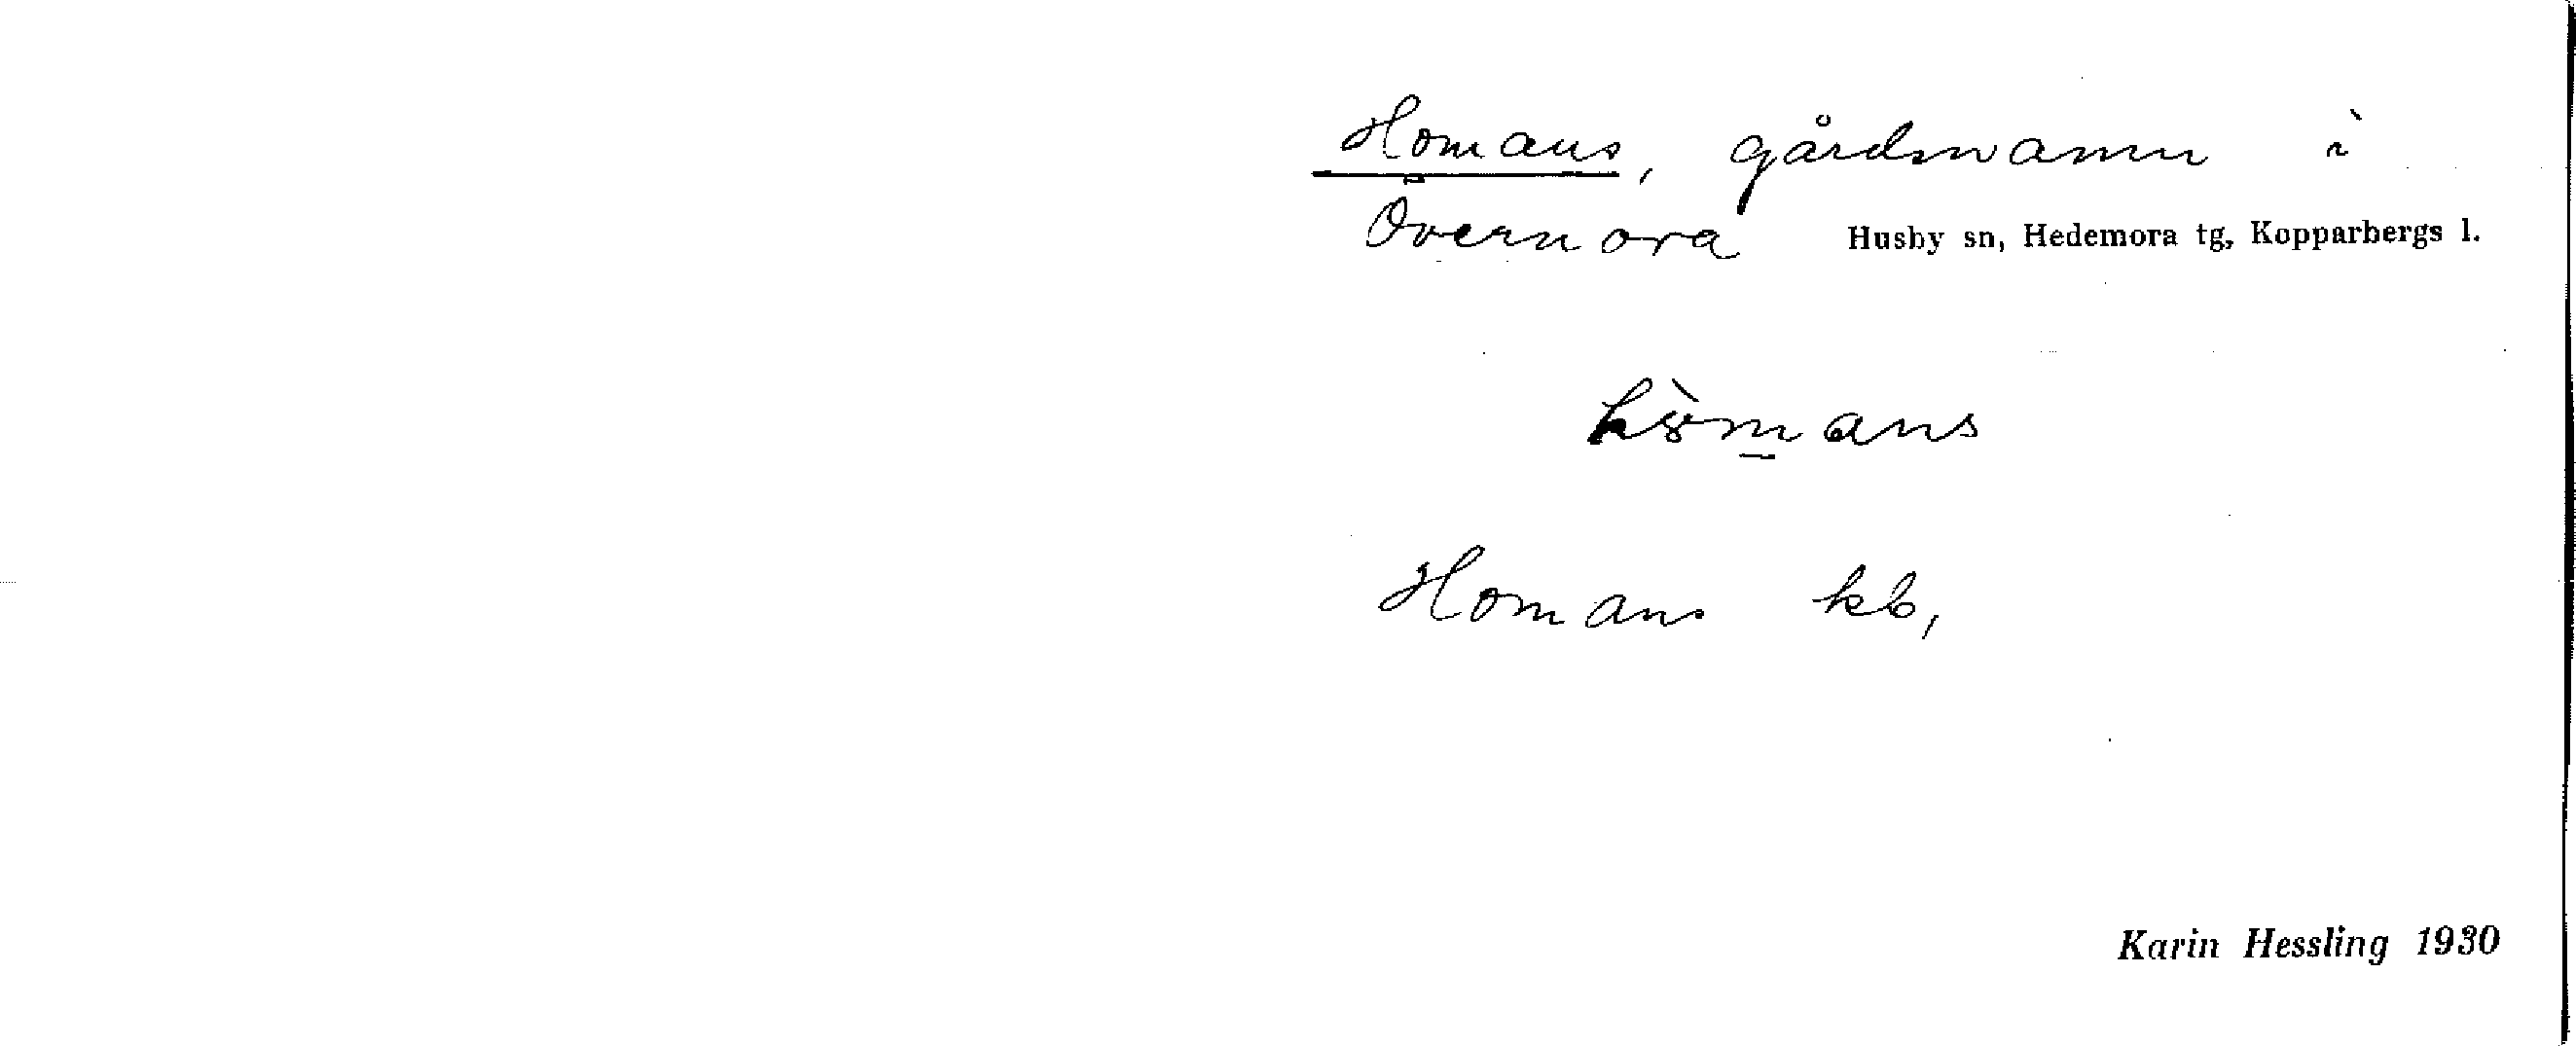 Homans, gårdsnamn i
Övernora Husby sn, Hedemora tg, Kopparbergs l.
Homans kb,
Karin Hessling 1930